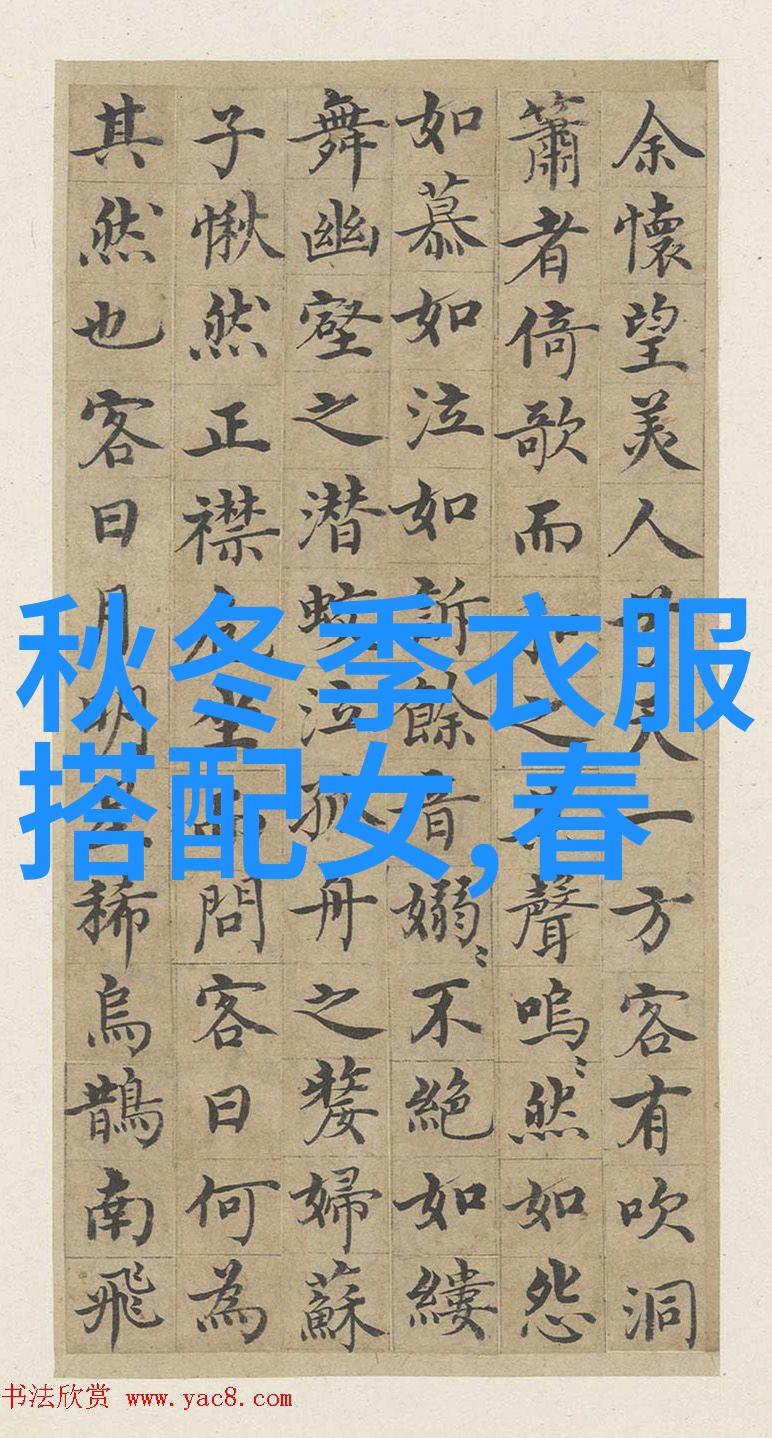 余懷望美人兮天一方客有吹洞
簫者倚歌而和之其聲嗚〻然如怨
如慕如泣如訴餘音嫋〻不絕如縷
舞幽壑之潜蛟泣孤舟之嫠婦蘇
子愀然正襟危坐而問客曰何為
其然也客曰月明星稀烏鵲南飛
秋冬季衣服
搭配女,春
书法欣赏 www.yac8.com